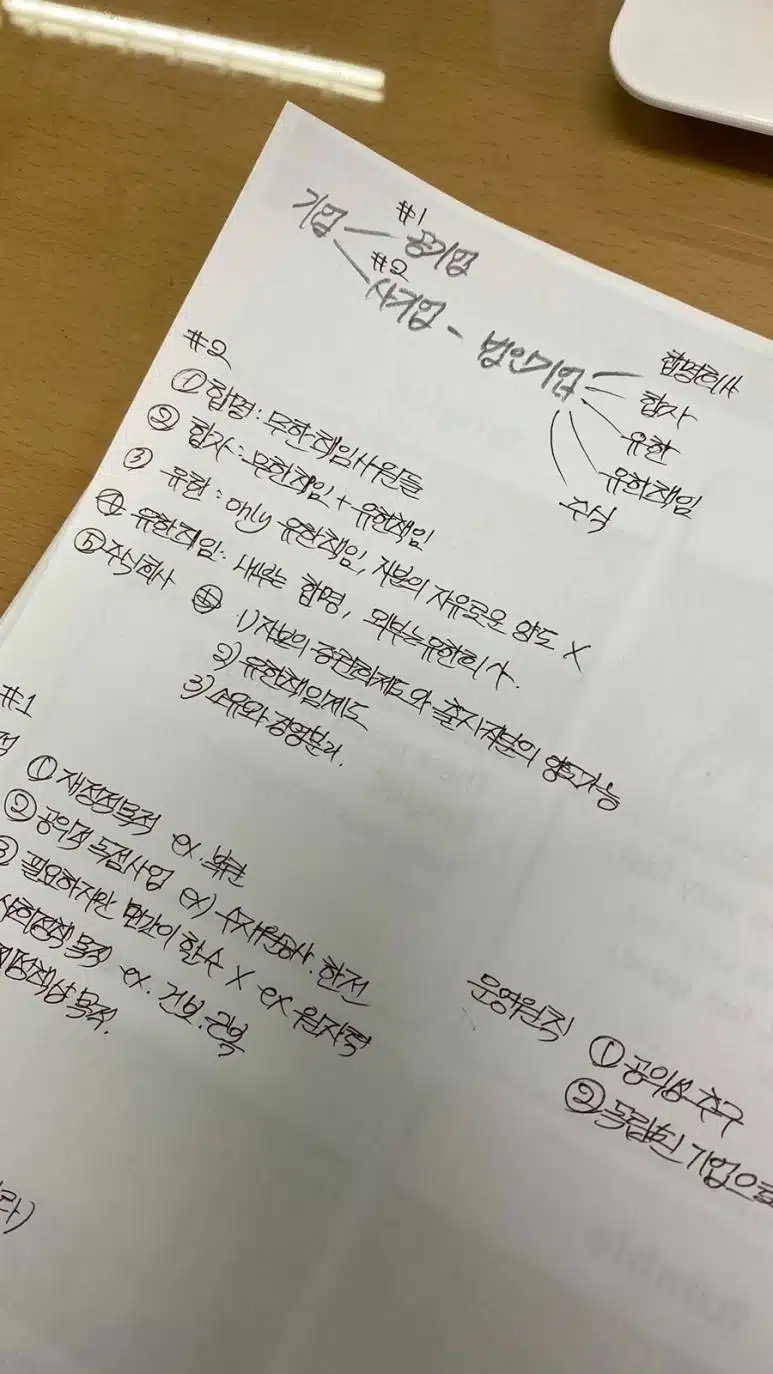 기업
#1
공기업
#2
사기업 - 법인기업
합명회사
합자
유한
유한책임
주식
#2
① 합명 : 무한책임사원들
② 합자 : 무한책임 + 유한책임
③ 유한 : only 유한책임, 자본의 자유로운 양도 X
④ 유한책임 : 내부는 합명, 외부는 유한회사.
⑤ 주식회사
1) 자본의 증권화제도와 출자지분의 양도가능
2) 유한책임제도
3) 소유와 경영분리.
#1
적 ① 재정적목적 ex.
② 공익적 독점사업 ex) 수자원공사. 한전
③ 필요하지만 민간이 할수 X ex 원자력
사회정책 목적 ex. 건보.
정책상 목적.
운영원칙 ① 공익성 추구
② 독립된 기업으로
라)